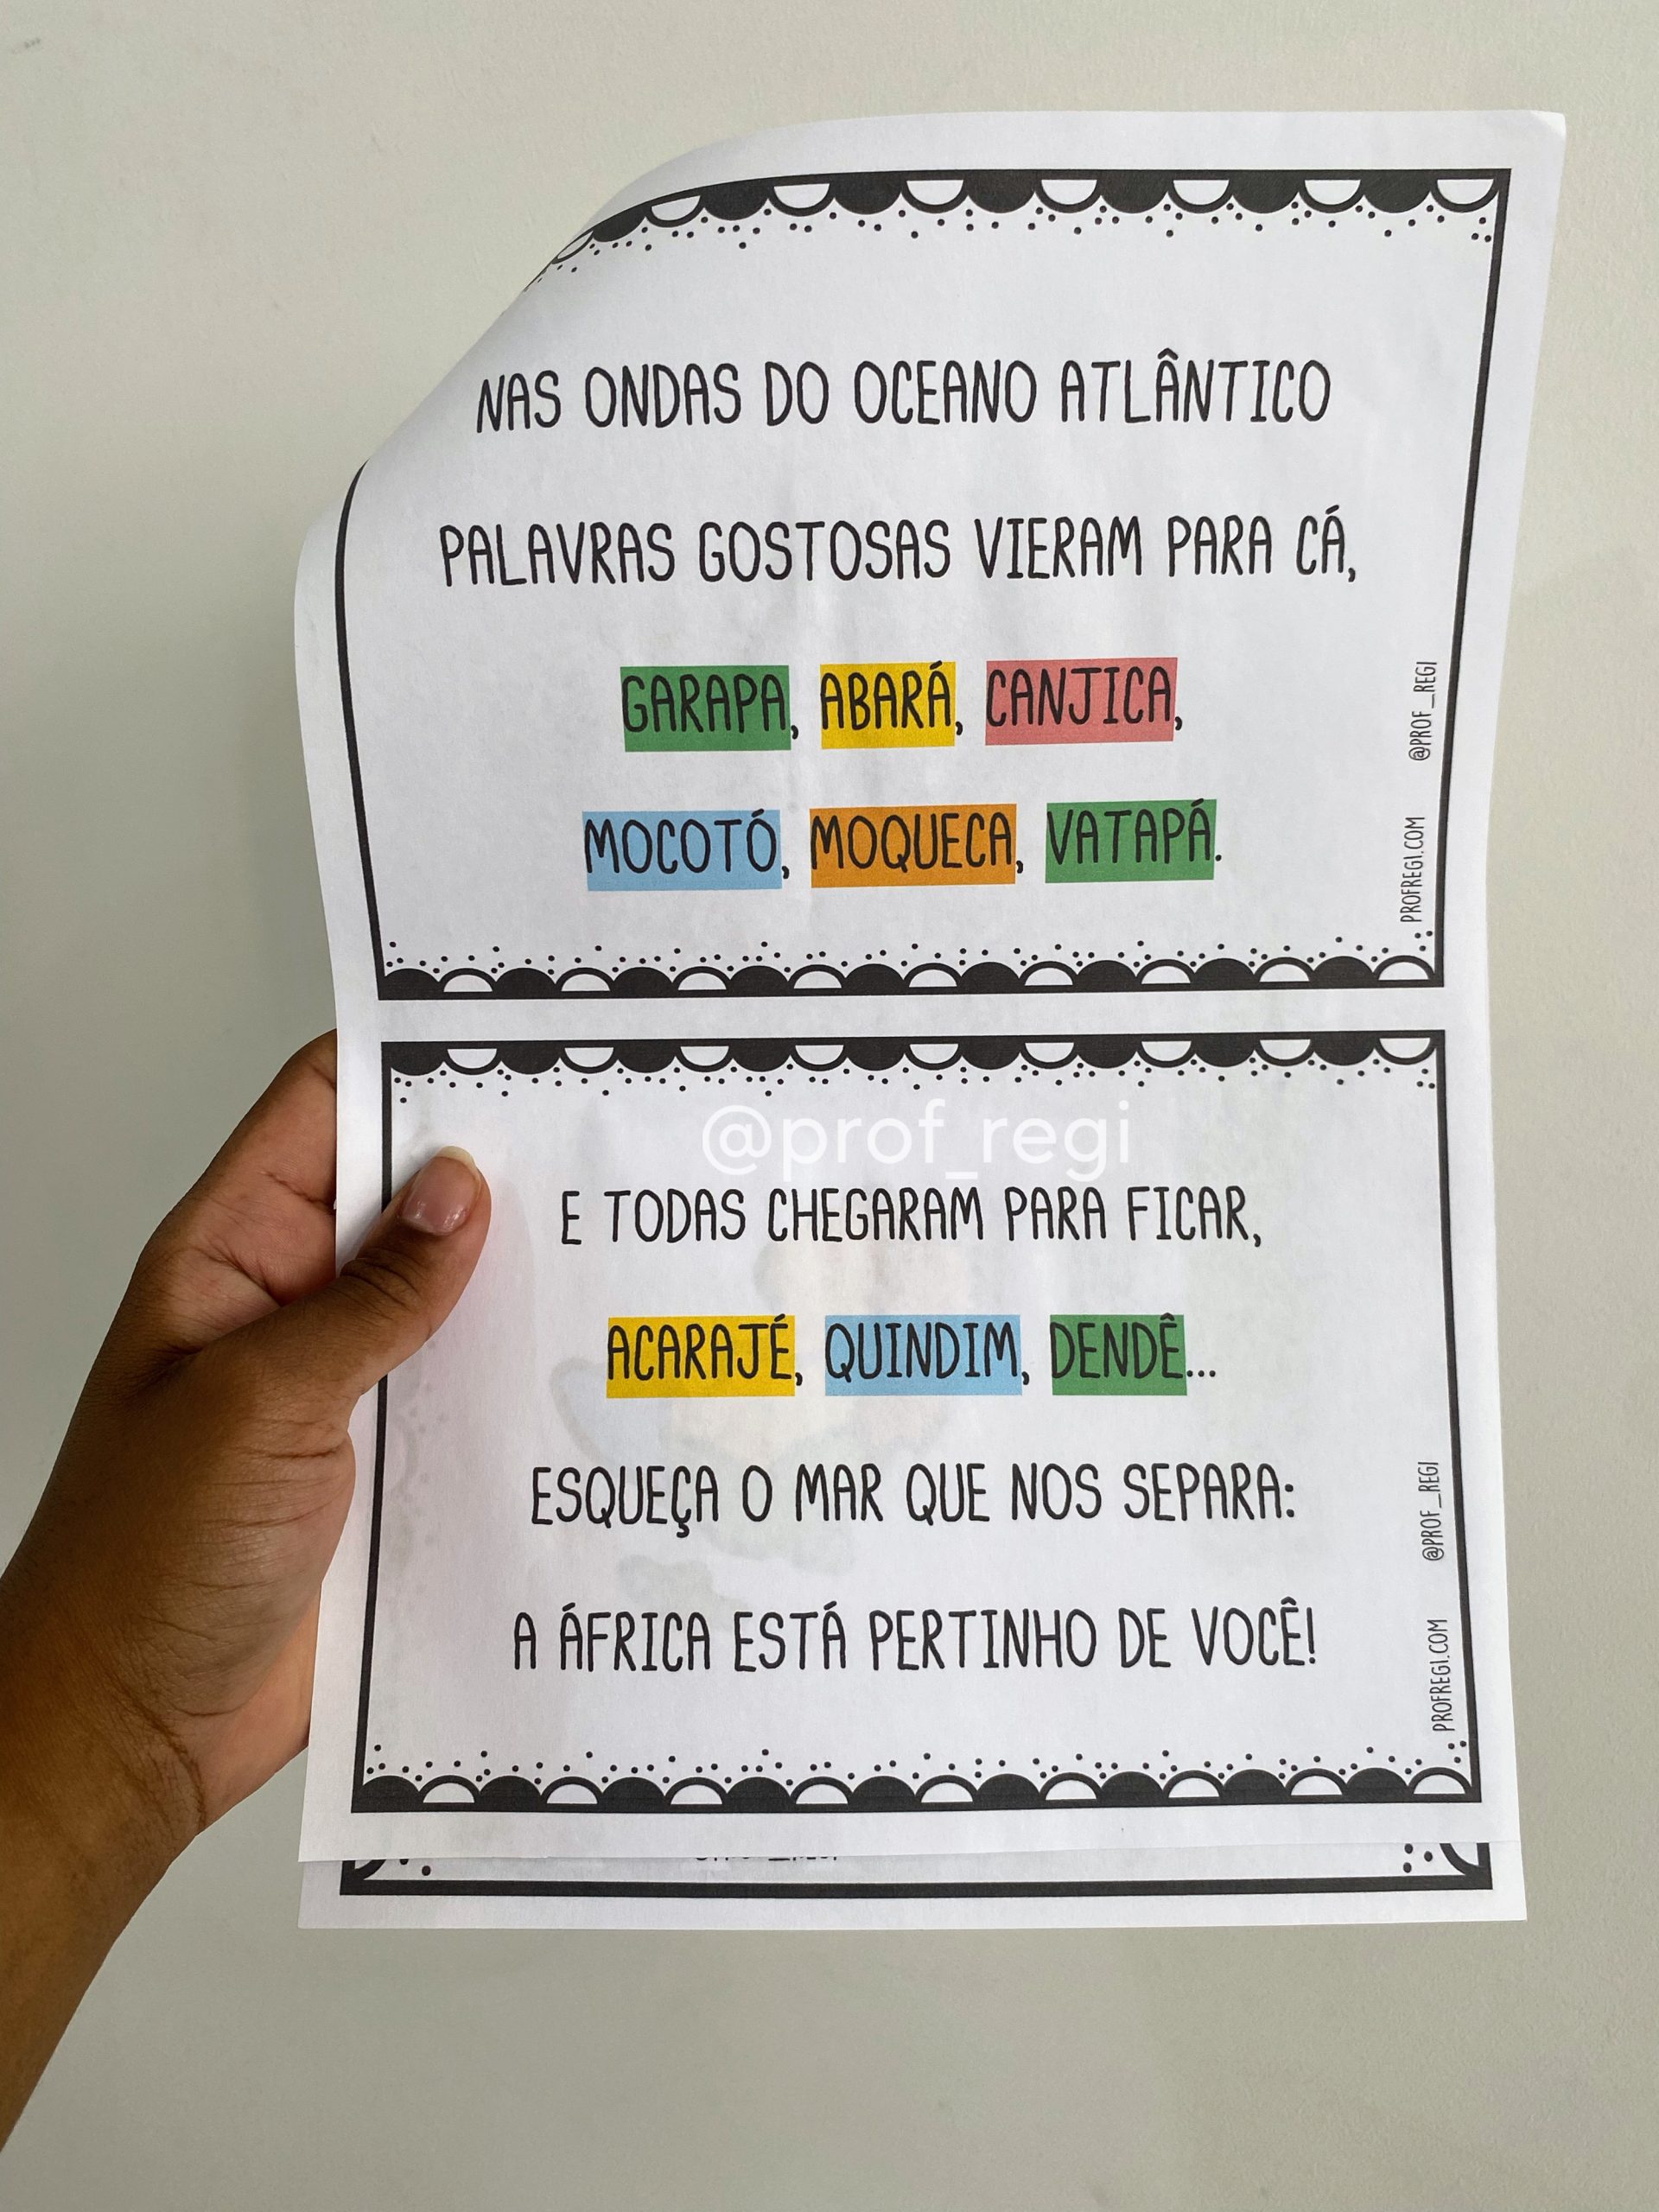 NAS ONDAS DO OCEANO ATLÂNTICO
PALAVRAS GOSTOSAS VIERAM PARA CÁ,
GARAPA, ABARÁ, CANJICA,
MOCOTÓ, MOQUECA, VATAPÁ.
PROFREGI.COM @PROF_REGI
@prof_regi
E TODAS CHEGARAM PARA FICAR,
ACARAJÉ, QUINDIM, DENDÊ...
ESQUEÇA O MAR QUE NOS SEPARA:
A ÁFRICA ESTÁ PERTINHO DE VOCÊ!
PROFREGI.COM @PROF_REGI